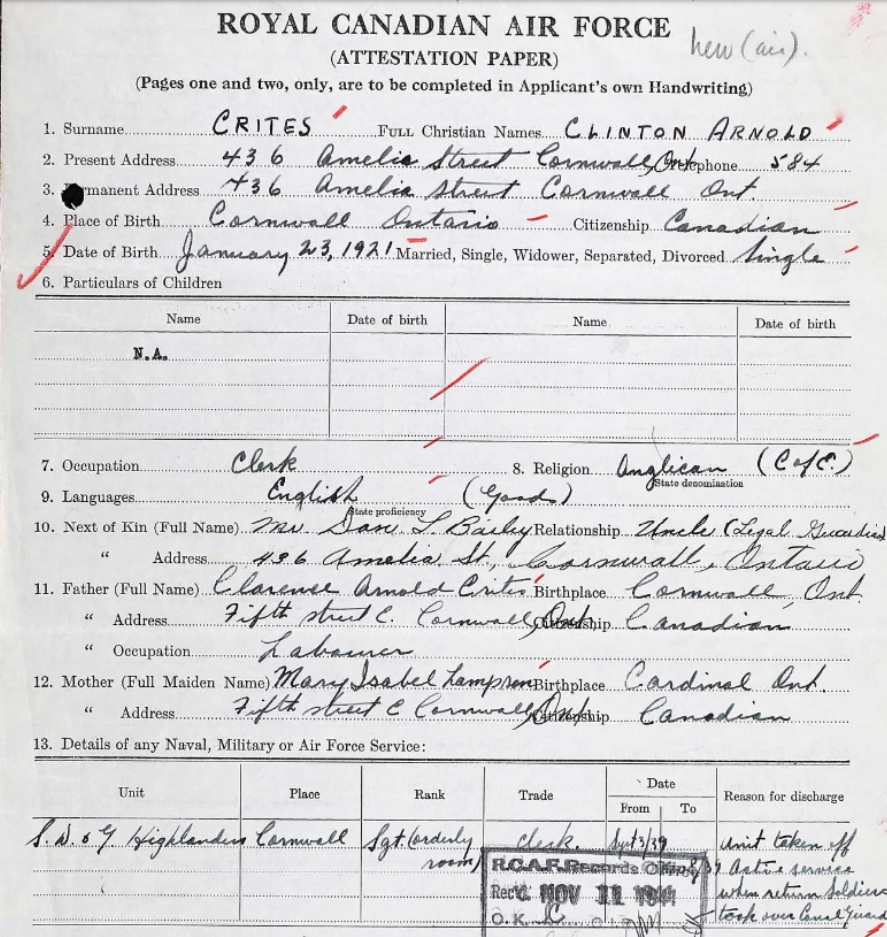 ROYAL CANADIAN AIR FORCE
new (air).
(ATTESTATION PAPER)
(Pages one and two, only, are to be completed in Applicant's own Handwriting)
1. Surname CRITES FULL Christian Names CLINTON ARNOLD
2. Present Address 436 Amelia Street Cornwall, Ont. Telephone 584
3. Permanent Address 436 Amelia Street Cornwall Ont.
4. Place of Birth Cornwall Ontario Citizenship Canadian
5. Date of Birth January 23, 1921 Married, Single, Widower, Separated, Divorced Single
6. Particulars of Children
Name Date of birth Name Date of birth
N.A.
7. Occupation Clerk 8. Religion Anglican (C of E.)
State denomination
9. Languages English (Good)
State proficiency
10. Next of Kin (Full Name) Mr. L. Bailey Relationship Uncle (Legal Guardian)
" Address 436 Amelia St., Cornwall, Ontario
11. Father (Full Name) Clarence Arnold Crites Birthplace Cornwall, Ont.
" Address Fifth street E. Cornwall, Ont. Citizenship Canadian
" Occupation Labourer
12. Mother (Full Maiden Name) Mary Isabel Birthplace Cardinal Ont.
" Address Fifth street E Cornwall, Ont. Citizenship Canadian
13. Details of any Naval, Military or Air Force Service:
Unit Place Rank Trade Date From To Reason for discharge
S. D. & G Highlanders Cornwall Sgt. (orderly room) Clerk. Sept 3/39 Unit taken off
Active service
when return Soldiers
took over Canal Guard
R.C.A.F. Records Office
Rec'd. NOV 11 1941
O.K.